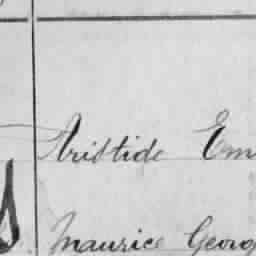 Aristide Em
Maurice Georg